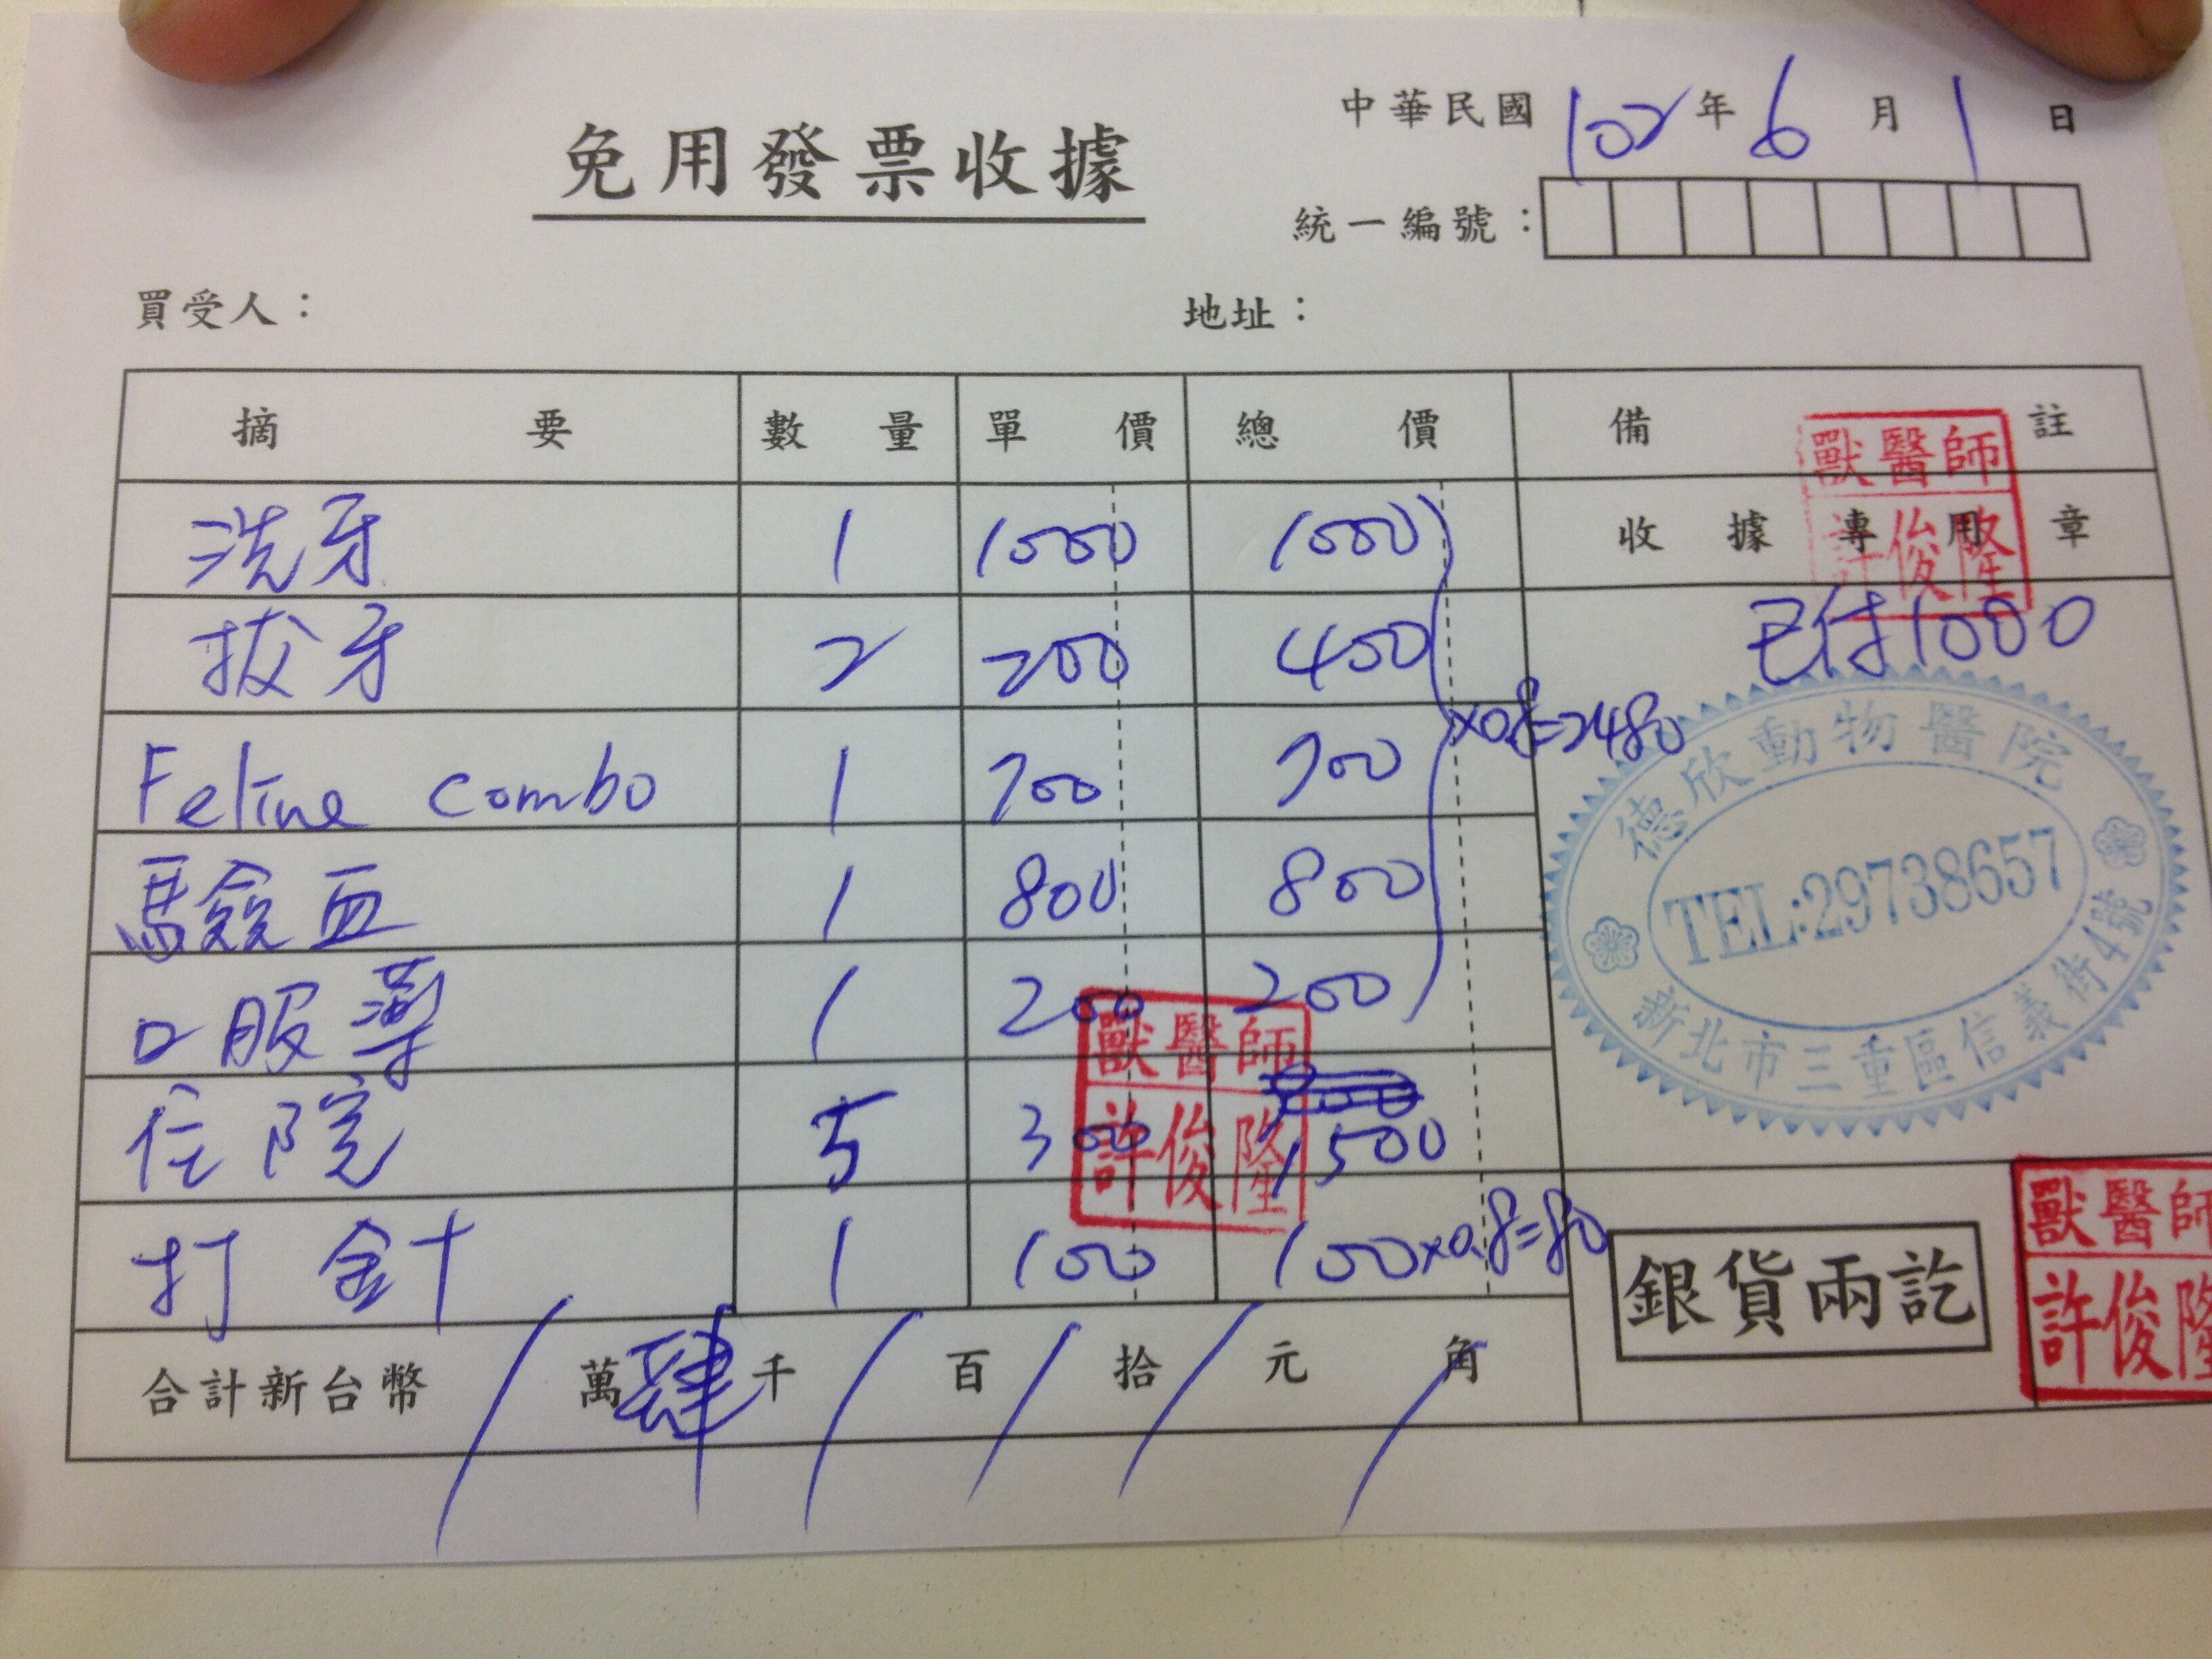 中華民國 102 年 6 月 1 日
免用發票收據
統一編號：
買受人： 地址：
摘要 數量 單價 總價 備註
收據專用章
獸醫師
許俊隆
洗牙 1 1000 1000
拔牙 2 200 400
已付1000
Feline combo 1 700 700
×0.8=2480
驗血 1 800 800
口服藥 1 200 200
德欣動物醫院
TEL:29738657
新北市三重區信義街4號
獸醫師
許俊隆
住院 5 300 1500
打針 1 100 100×0.8=80
銀貨兩訖
獸醫師
許俊隆
合計新台幣 / 萬 肆 千 / 百 / 拾 / 元 / 角